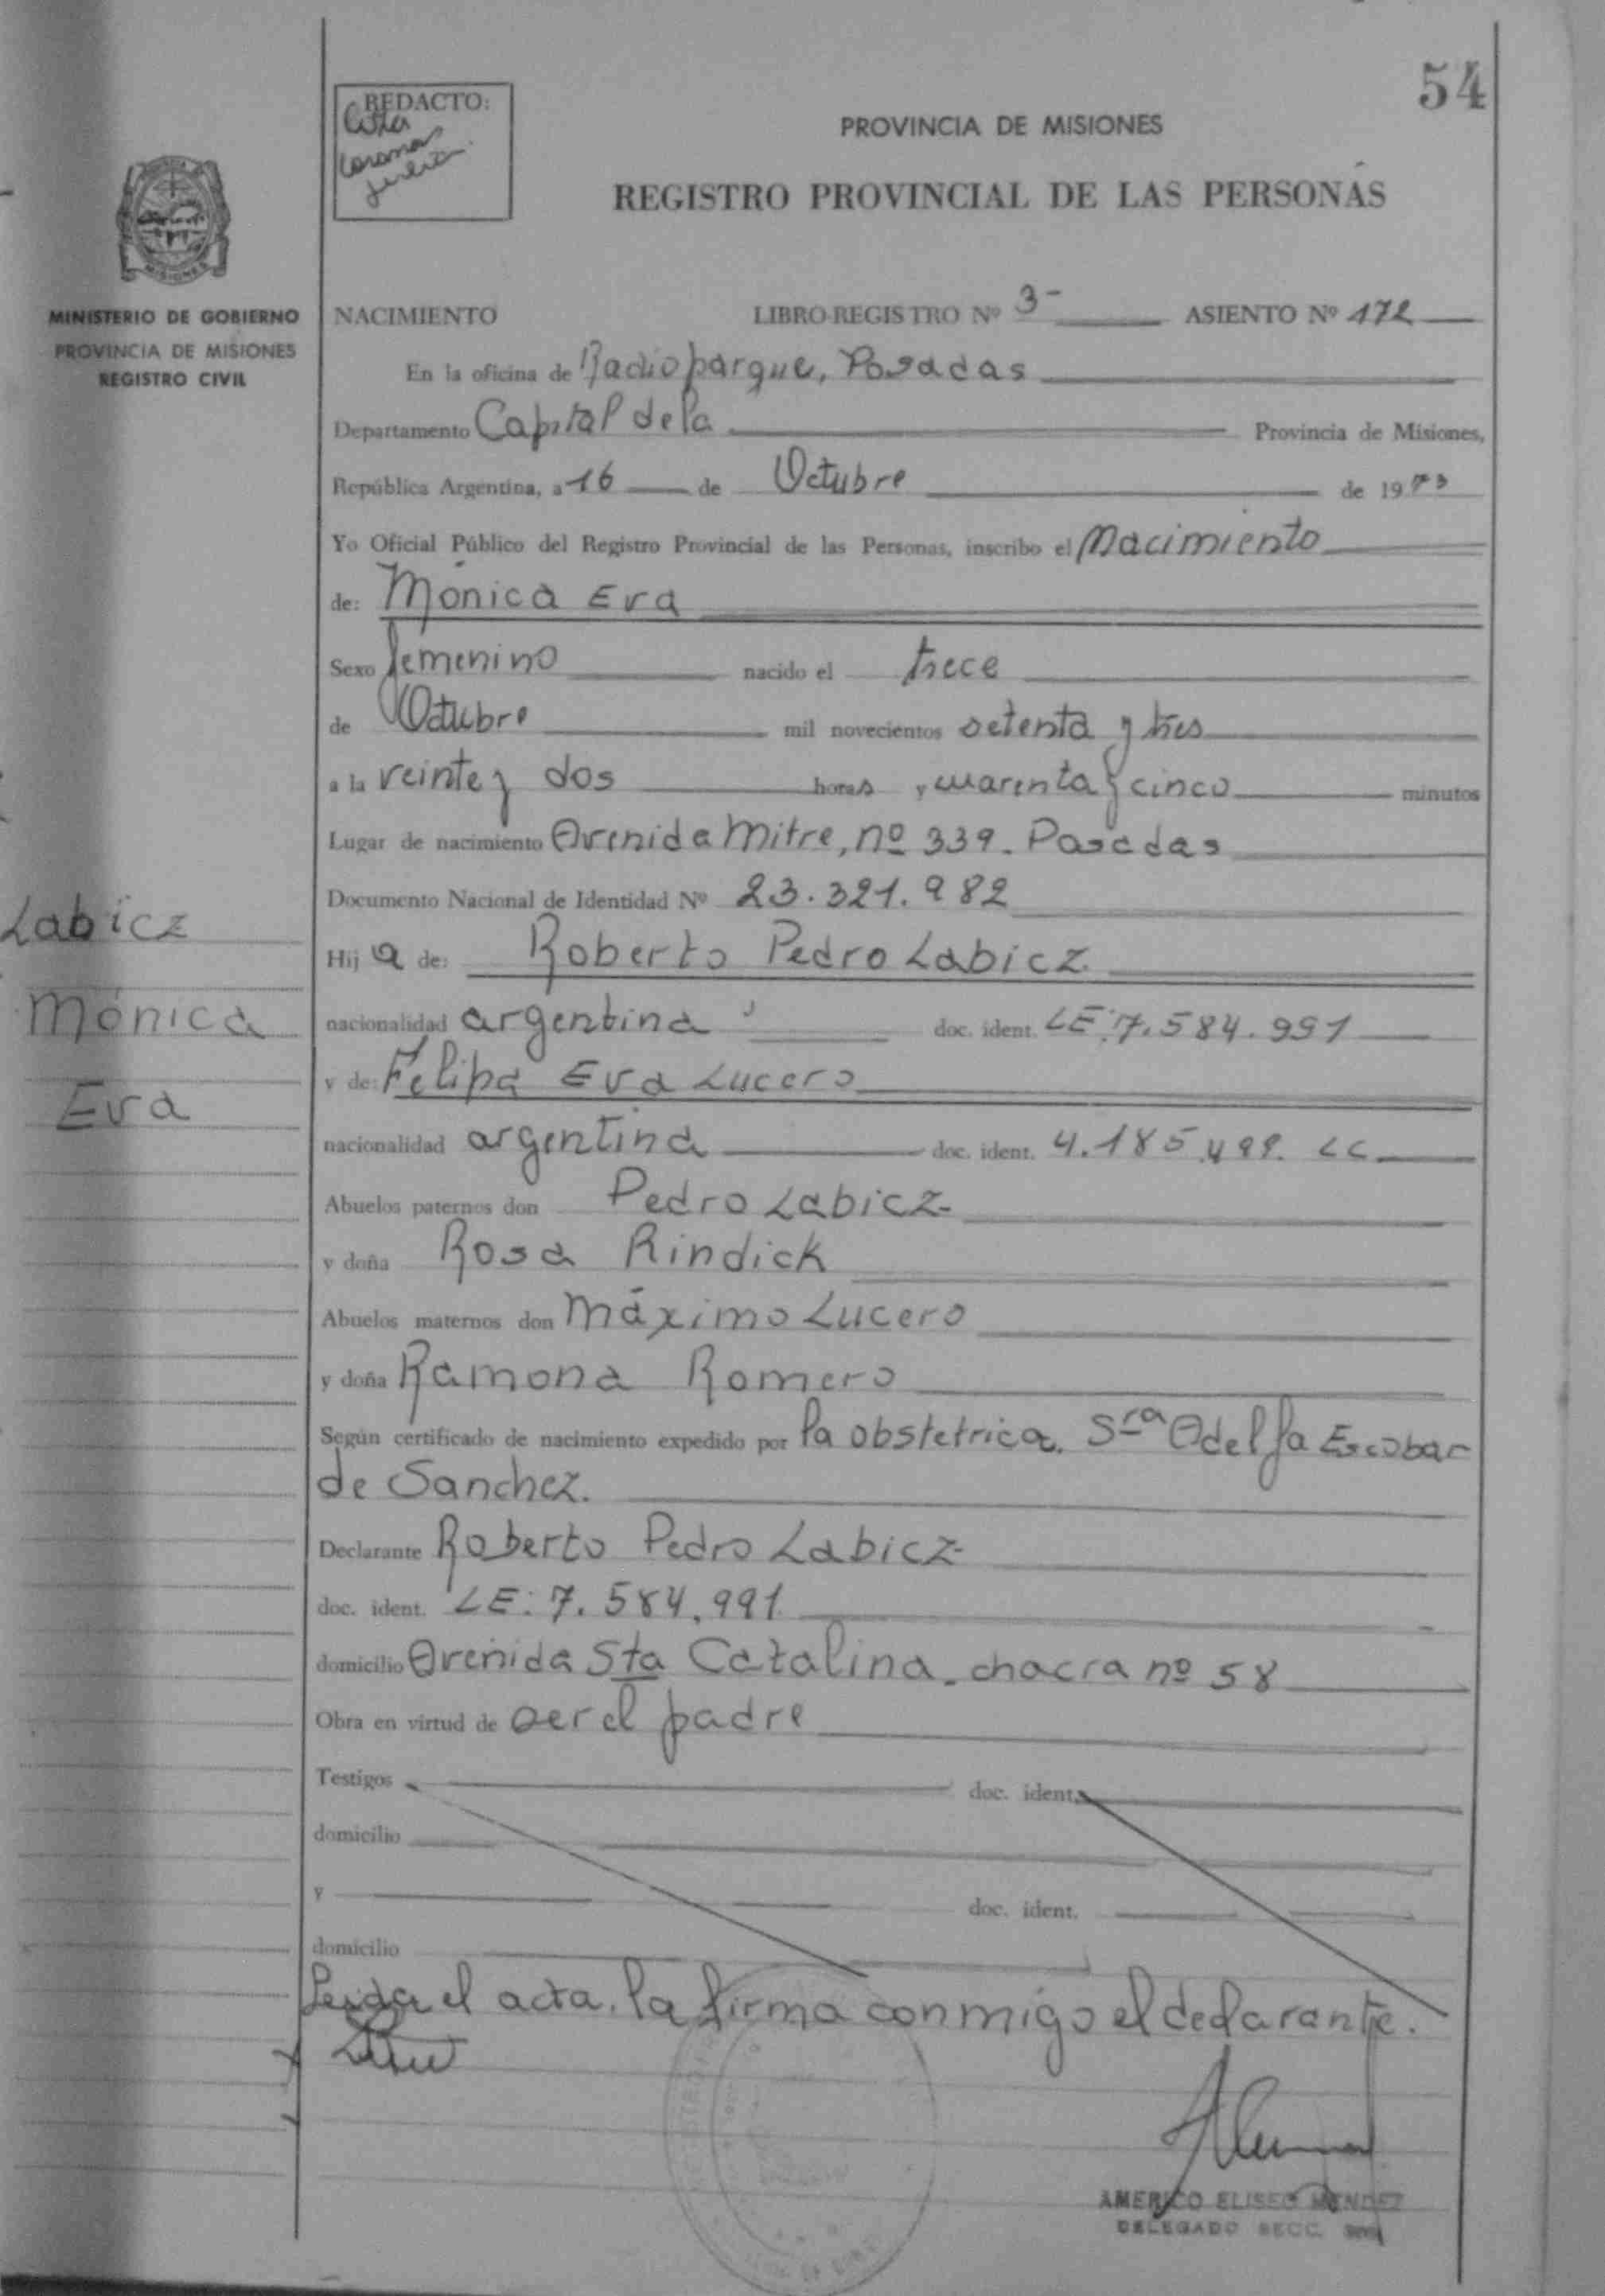 54
REDACTO:
PROVINCIA DE MISIONES
REGISTRO PROVINCIAL DE LAS PERSONAS
MISIONES
MINISTERIO DE GOBIERNO
PROVINCIA DE MISIONES
REGISTRO CIVIL
NACIMIENTO LIBRO-REGISTRO Nº 3- ASIENTO Nº 172
En la oficina de Radioparque, Posadas
Departamento Capital de la Provincia de Misiones,
República Argentina, a 16 de Octubre de 1973
Yo Oficial Público del Registro Provincial de las Personas, inscribo el Nacimiento
de: Mónica Eva
Sexo femenino nacido el trece
de Octubre mil novecientos setenta y tres
a la veinte y dos horas y cuarenta y cinco minutos
Lugar de nacimiento Avenida Mitre, nº 339 - Posadas
Documento Nacional de Identidad Nº 23.321.982
Labicz
Mónica
Eva
Hija de: Roberto Pedro Labicz
nacionalidad argentina doc. ident. LE: 7.584.991
y de: Felipa Eva Lucero
nacionalidad argentina doc. ident. 4.185.499. LC
Abuelos paternos don Pedro Labicz-
y doña Rosa Rindick
Abuelos maternos don Máximo Lucero
y doña Ramona Romero
Según certificado de nacimiento expedido por la obstetrica. Sra Odelfa Escobar
de Sanchez.
Declarante Roberto Pedro Labicz-
doc. ident. LE: 7.584.991
domicilio Avenida Sta Catalina - chacra nº 58
Obra en virtud de ser el padre
Testigos doc. ident.
domicilio
y doc. ident.
domicilio
Leida el acta, la firma conmigo el declarante.
AMERICO ELISEO MENDEZ
DELEGADO SECC.